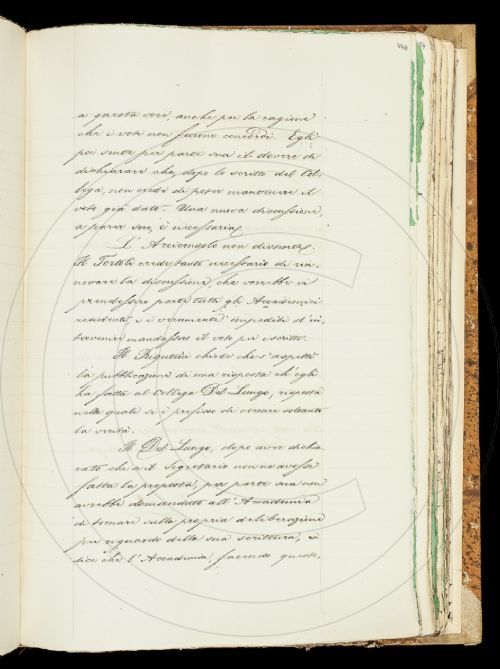 446
a questa voce, anche per la ragione
che i voti non furono concordi. Egli
poi sente per parte sua il dovere di
dichiarare che, dopo lo scritto del Col-
lega, non crede di poter mantenere il
voto già dato. Una nuova discussione,
a parer suo, è necessaria.
L'Arcicensolo non dissente.
Il Tortoli crede tanto necessario di rin-
novare la discussione che vorrebbe vi
prendessero parte tutti gli Accademici
residenti, e i veramente impediti d'in-
tervenire mandassero il voto per iscritto.
Il chiede che s'aspetti
la pubblicazione di una risposta ch'egli
ha fatta al Collega Del Lungo, risposta
nella quale si è prefisso di cercare soltanto
la verità.
Il Del Lungo, dopo aver dichia-
rato che se il Segretario non ne avesse
fatta la proposta, per parte sua non
avrebbe domandato all'Accademia
di tornare sulla propria deliberazione
per riguardo della sua scrittura,
dice che l'Accademia, facendo questo,